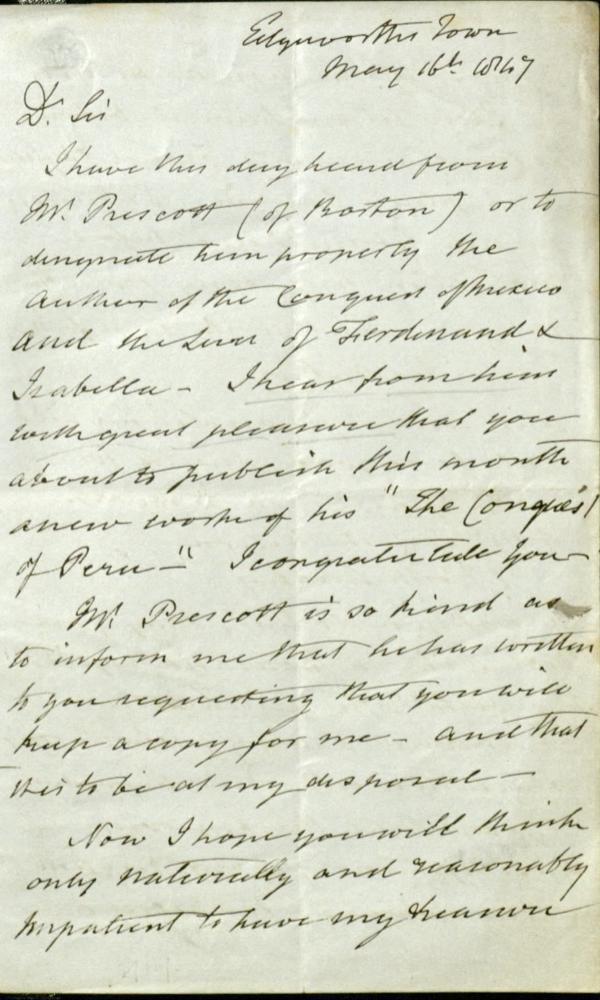 Edgeworths Town
May 16th 1847
Dr. Sir
I have this day heard from
Mr. Prescott (of Boston) or to
designate him properly the
Author of the Conquest of Mexico
and the Lives of Ferdinand &
Isabella - I hear from him
with great pleasure that you
about to publish this month
a new work of his "The Conquest
of Peru -" I congratulate You -
Mr. Prescott is so kind as
to inform me that he has written
to you requesting that you will
keep a copy for me - and that
it is to be at my disposal -
Now I hope you will think
only naturally and reasonably
impatient to have my treasure